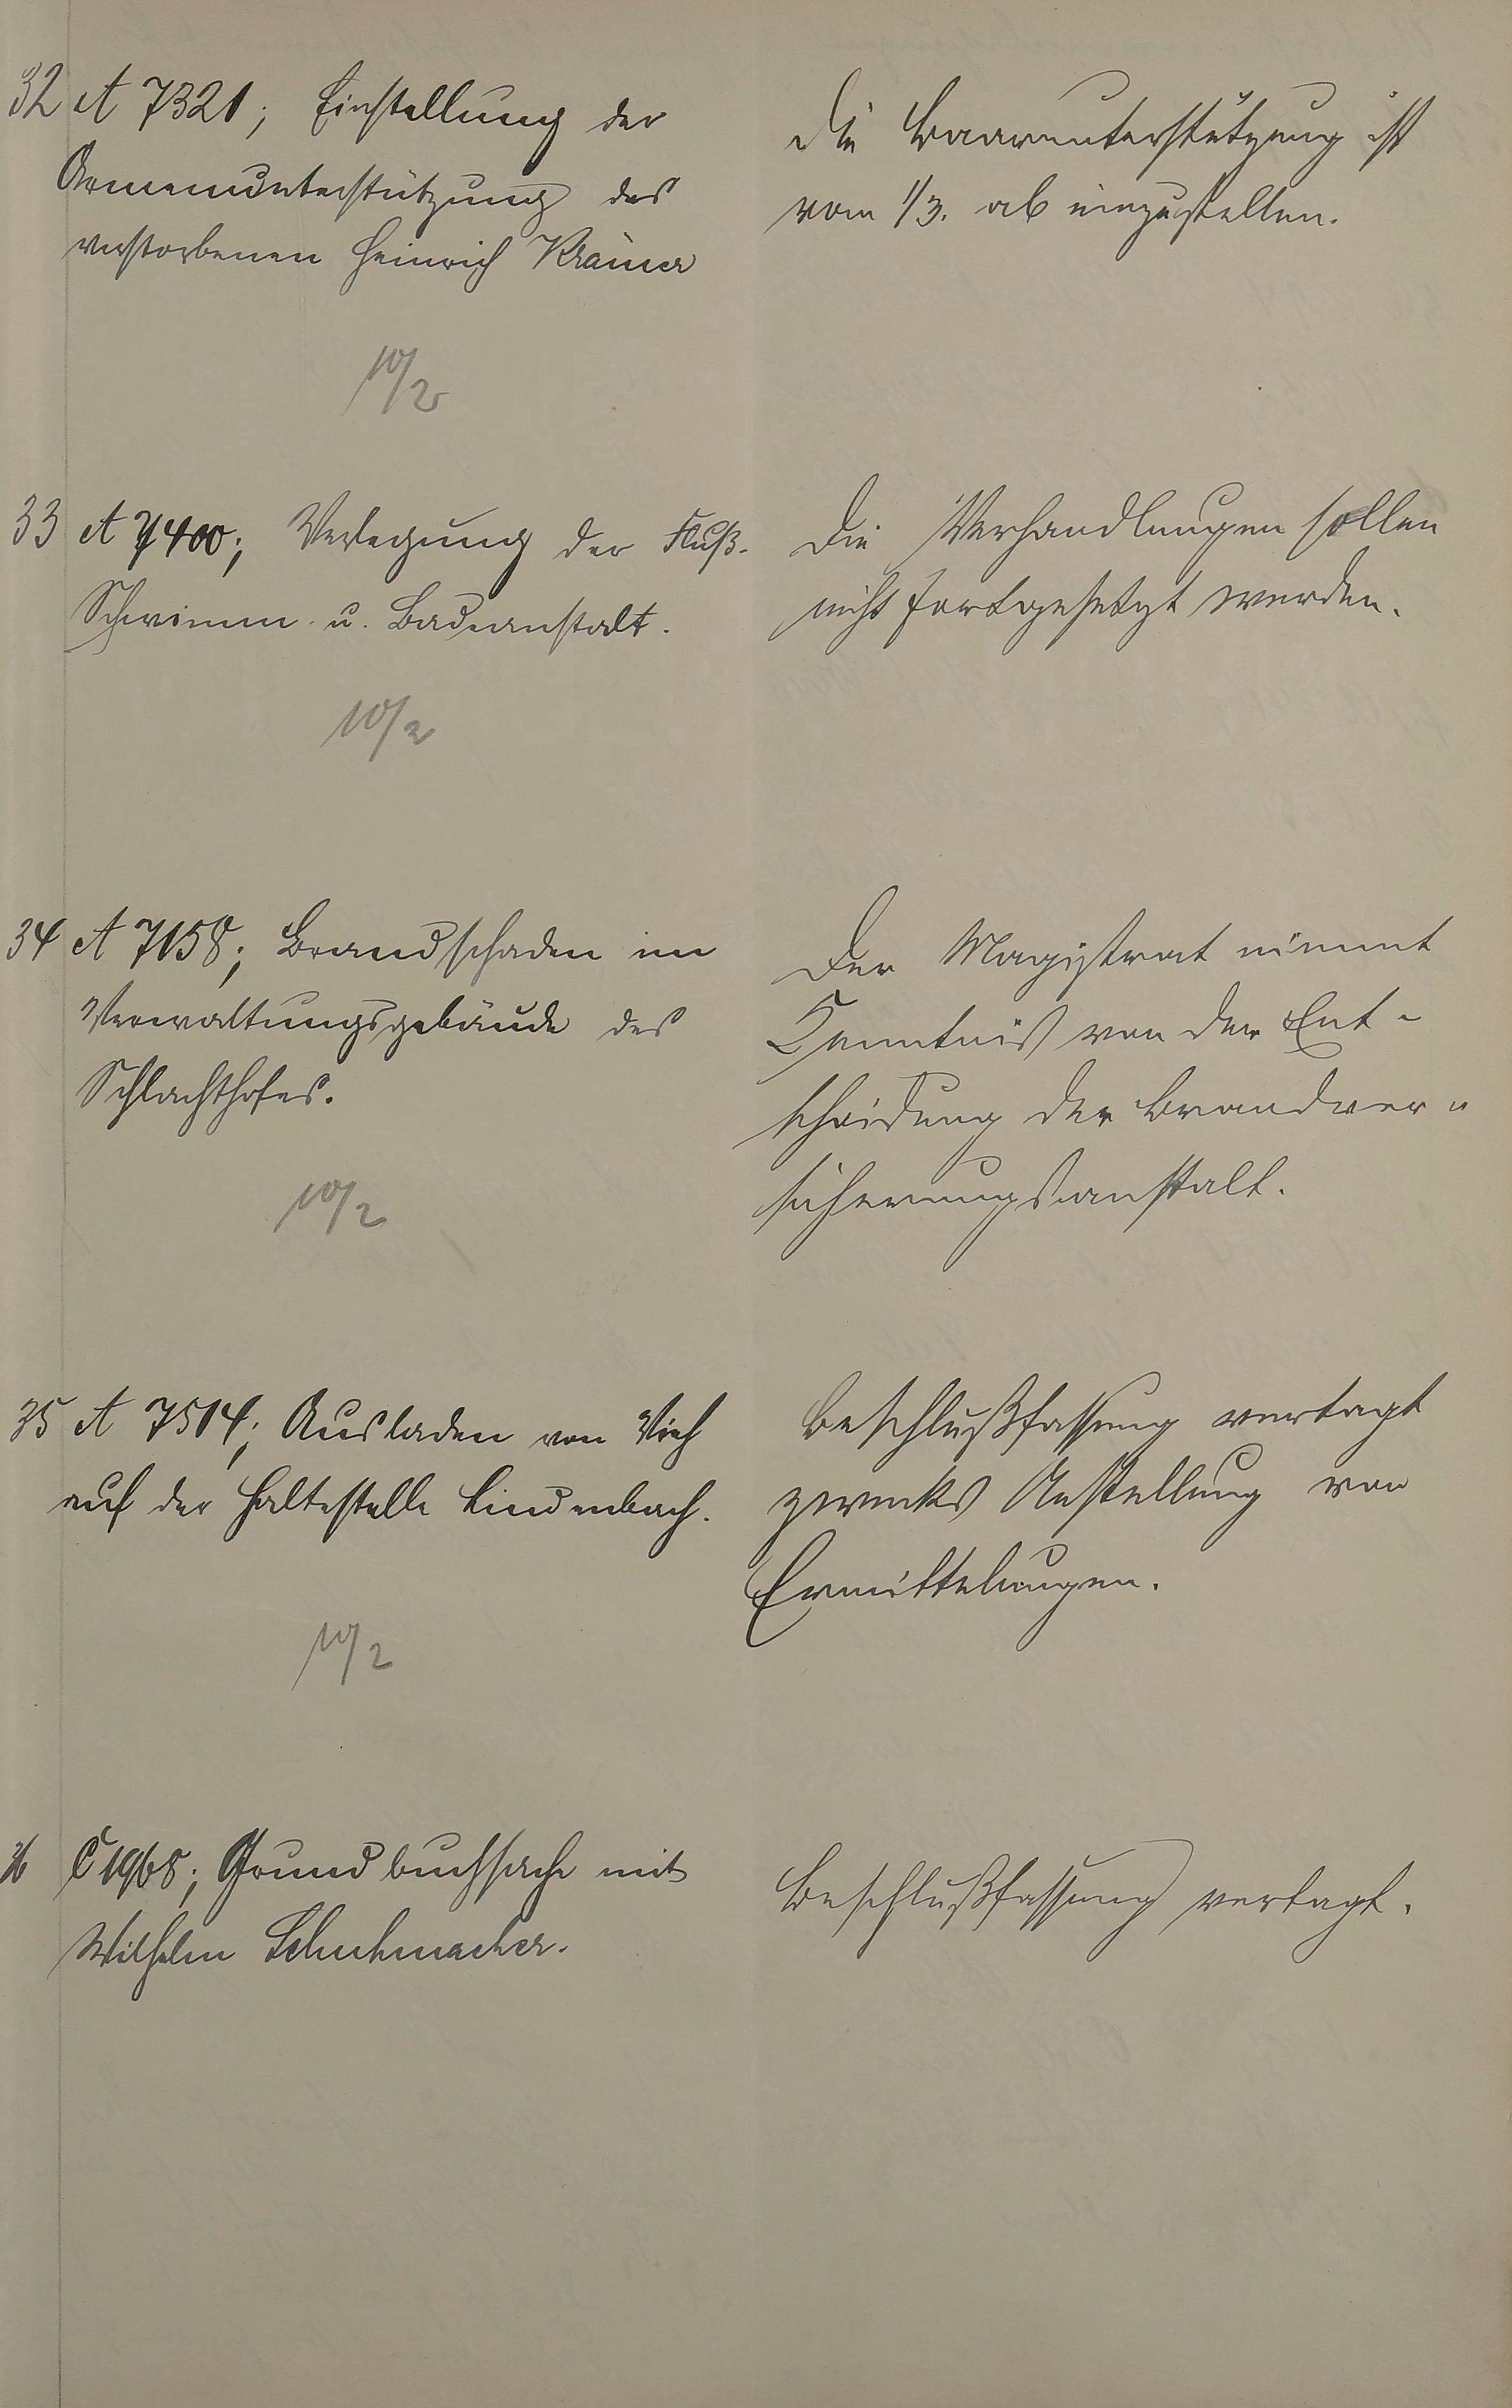 32 A 7321; Einstellung der
Armenunterstützung des
verstorbenen Heinrich Krämer
10/2
Die Baarunterstützung ist
vom 1/3. ab einzustellen.
33 A 7400; Verlegung der Fluß-
Schwimm- u. Badeanstalt.
10/2
Die Verhandlungen sollen
nicht fortgesetzt werden.
34 A 7158; Brandschaden im
Verwaltungsgebäude des
Schlachthofes.
10/2
Der Magistrat nimmt
Kenntniß von der Ent-
scheidung der Brandver-
sicherungsanstalt.
35 A 7514; Ausladen von Vieh
auf der Haltestelle Lindenbach.
10/2
Beschlußfassung vertagt
zwecks Anstellung von
Ermittelungen.
36 C 1968; Grundbuchsache mit
Wilhelm Schuhmacher.
Beschlußfassung vertagt.